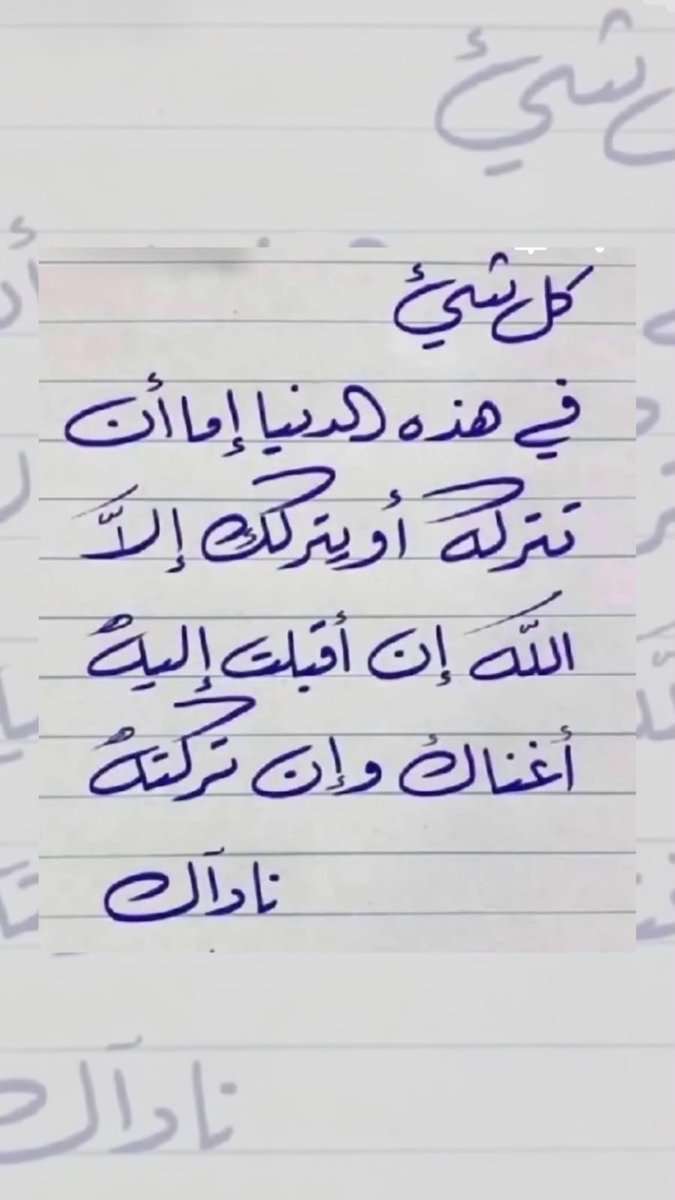 كل شيئ
في هذه الدنيا إما أن
تتركه أو يتركك إلاَّ
اللَّه إن أقبلت إليهُ
أغناك وإن تركتهُ
نادآك